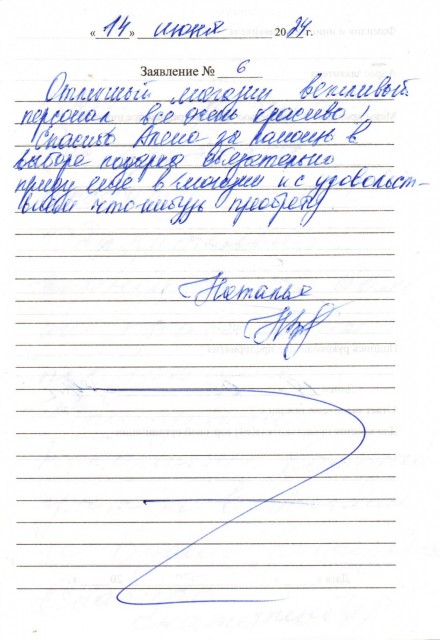 « 14 » июня 2024 г.
Заявление № 6
Отличный магазин вежливый
персонал все очень красиво!
Спасибо Алена за помощь в
выборе подарка обязательно
приду еще в магазин и с удовольст-
вием что-нибудь преобрету
Наталья